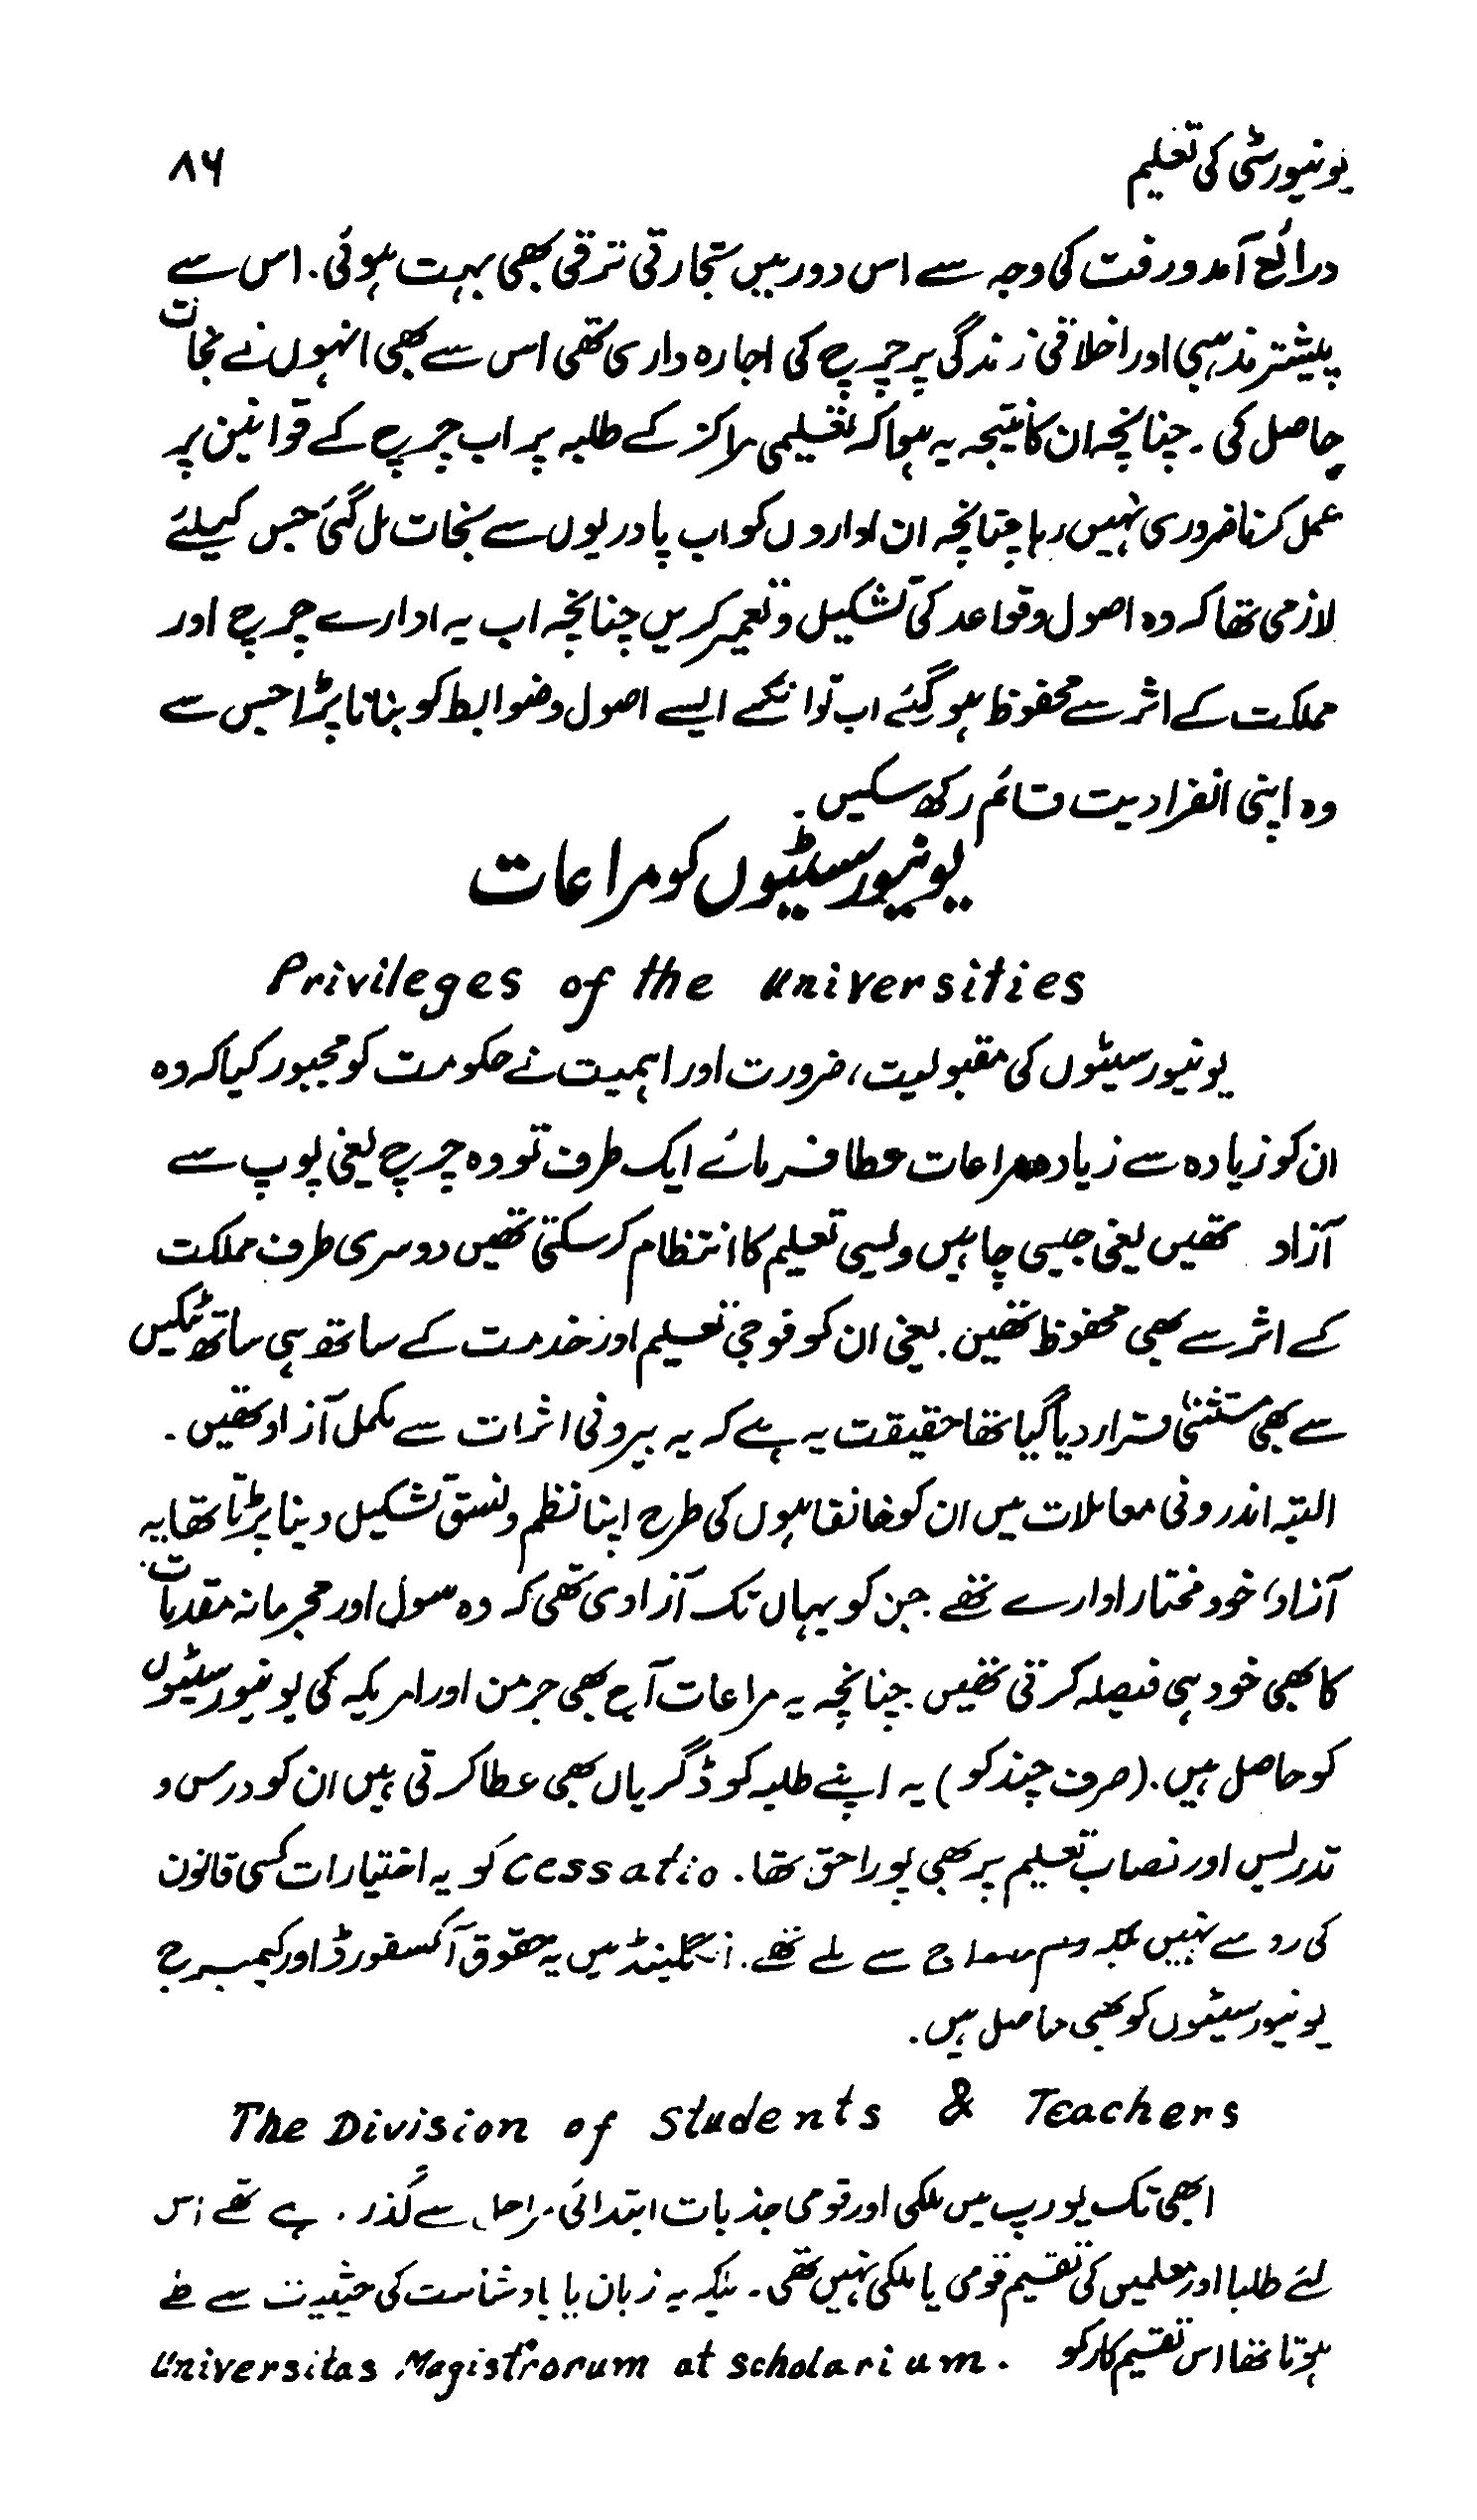 یونیورسٹی کی تعلیم
۸۶
درائع آمدورفت کی وجہ سے اس دور میں تجارتی ترقی بھی بہت ہوئی۔ اس سے
پیشتر مذہبی اور اخلاقی زندگی پر چرچ کی اجارہ داری تھی اس سے بھی انہوں نے نجات
حاصل کی۔ چنانچہ ان کا نتیجہ یہ ہوا کہ تعلیمی مراکز کے طلبہ پر اب چرچ کے قوانین پر
عمل کرنا ضروری نہیں رہا چنانچہ ان اداروں کو اب پادریوں سے نجات مل گئی جس کیلئے
لازمی تھا کہ وہ اصول و قواعد کی تشکیل و تعمیر کریں چنانچہ اب یہ ادارے چرچ اور
مملکت کے اثر سے محفوظ ہو گئے اب تو انکے ایسے اصول و ضوابط کو بنانا پڑا جس سے
وہ اپنی انفرادیت قائم رکھ سکیں۔
یونیورسٹیوں کو مراعات
Privileges of the Universities
یونیورسیٹوں کی مقبولیت، ضرورت اور اہمیت نے حکومت کو مجبور کیا کہ وہ
ان کو زیادہ سے زیادہ مراعات عطا فرمائے ایک طرف تو وہ چرچ یعنی پوپ سے
آزاد تھیں یعنی جیسی چاہیں ویسی تعلیم کا انتظام کر سکتی تھیں دوسری طرف مملکت
کے اثر سے بھی محفوظ تھیں۔ یعنی ان کو فوجی تعلیم اور خدمت کے ساتھ ہی ساتھ ٹیکس
سے بھی مستثنیٰ قرار دیا گیا تھا حقیقت یہ ہے کہ یہ بیرونی اثرات سے مکمل آزاد تھیں۔
البتہ اندرونی معاملات میں ان کو خانقاہوں کی طرح اپنا نظم و نسق تشکیل دینا پڑتا تھا یہ
آزاد، خود مختار ادارے تھے۔ جن کو یہاں تک آزادی تھی کہ وہ سول اور مجرمانہ مقدمات
کا بھی خود ہی فیصلہ کرتی تھیں۔ چنانچہ یہ مراعات آج بھی جرمن اور امریکہ کی یونیورسیٹوں
کو حاصل ہیں۔ (صرف چند کو) یہ اپنے طلبہ کو ڈگریاں بھی عطا کرتی ہیں ان کو درس و
تدریس اور نصاب تعلیم پر بھی پورا حق تھا۔ cessatio کو یہ اختیارات کسی قانون
کی رو سے نہیں بلکہ رسم سماج سے ملے تھے۔ انگلینڈ میں یہ حقوق آکسفورڈ اور کیمبرج
یونیورسیٹوں کو بھی حاصل ہیں۔
The Division of Students & Teachers
ابھی تک یورپ میں ملکی اور قومی جذبات ابتدائی مراحل سے گذر رہے تھے اس
لئے طلبا اور معلمیں کی تقسیم قومی یا ملکی نہیں تھی۔ بلکہ یہ زبان یا بادشاہت کی حیثیت سے طے
ہوتا تھا اس تقسیم کار کو Universitas Magistrorum at scholarium.